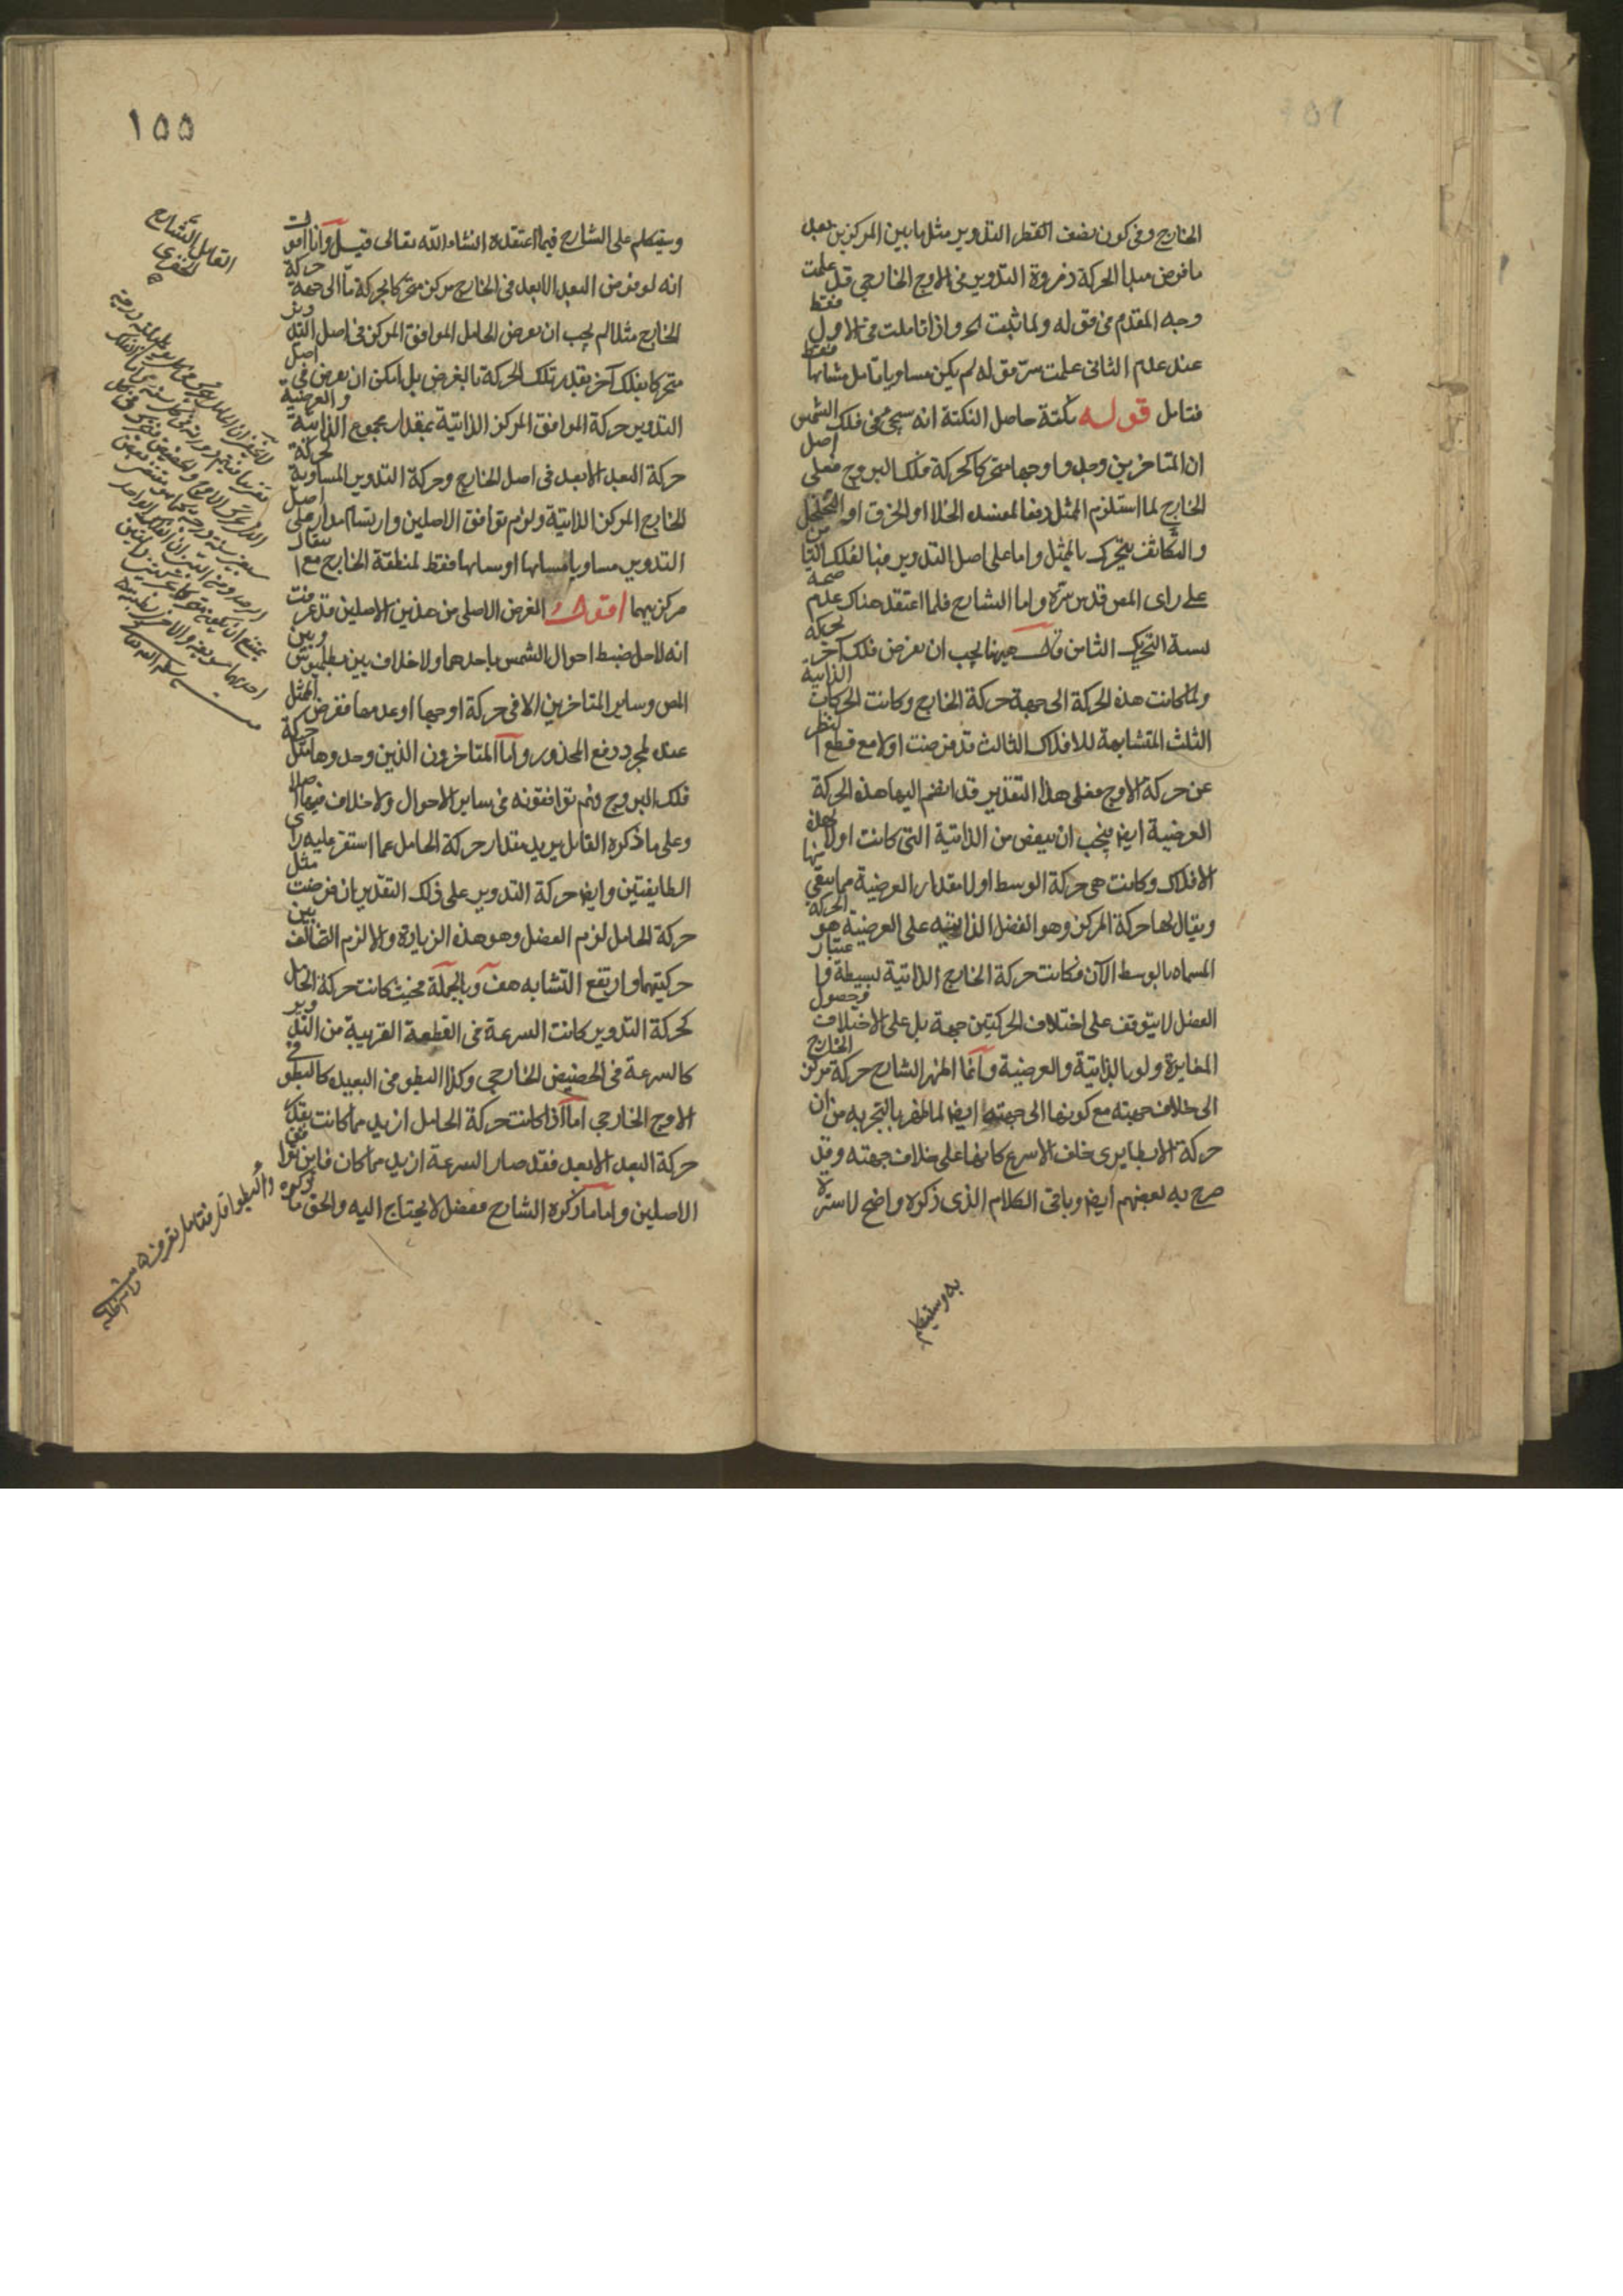 الخارج وفى كون نصف القطر التدوير مثل ما بين المركزين بعد
ما فرض مبدا الحركة ذروة التدوير فى الاوج الخارجى قد علمت
وجه المقدم من قوله ولما ثبت الخ واذا تاملت فى الاول فقط
عند علم الثانى علمت سرّ قوله لم يكن مساويا قابل مشابها فقط
فتامل قوله نكتة حاصل النكتة انه سيجى فى فلك الشمس
ان المتاخرين وجدوا اوجها متحركا كحركة فلك البروج فعلى اصل
الخارج لما استلزم الممثل دفعا لمفسدة الخلا او الخرق او التخلخل
والتكاثف يتحرك بالممثل واما على اصل التدوير فبالفلك الثامن
على راى المص قدس سرّه واما الشارح فلما اعتقد هناك عدم صحة
نسبة التحريك الثامن قال ههنا يجب ان نفرض فلك آخر يحركه
ولما كانت هذه الحركة الى جهة حركة الخارج وكانت الحركات الذاتية
الثلث المتشابهة للافلاك الثالث قد فرضت اولا مع قطع النظر
عن حركة الاوج فعلى هذا التقدير قد انضم اليها هذه الحركة
العرضية ايض فيجب ان ينقص من الذاتية التى كانت اولا لهذه
الافلاك وكانت هى حركة الوسط اولا بقدار العرضية مما يبقى منها
ويقال لها حركة المركز وهو الفضل الذاتية على العرضية هو الحركة
المسماه بالوسط الآن فكانت حركة الخارج الذاتية بسيطة واعتبار
الفضل لا يتوقف على اختلاف الحركتين جهة بل على الاختلاف وحصول
المغايرة ولو بالذاتية والعرضية وانما اظهر الشارح حركة مركز الخارج
الى خلاف جهته مع كونها الى جهتها ايضا لما ظفر بالتجربه من ان
حركة الابطا يرى خلف الاسرع كانها على خلاف جهته وقد
صرح به بعضهم ايض وباقى الكلام الذى ذكره واضح لا سترة
به وسيتكلم
١٥٥
وسيتكلم على الشارح فيما اعتقده انشاء الله تعالى قيل وانا اقول
انه لو فرض البعد الابعد فى الخارج مركز متحركا بحركة ما الى جهة حركة
الخارج مثلا لم يجب ان يفرض الحامل الموافق المركز فى اصل التدوير
متحركا بفلك آخر بقدر تلك الحركة بالفرض بل امكن ان يفرض فى اصل
التدوير حركة الموافق المركز الذاتية بمقدار مجموع الذاتية والعرضية
حركة البعد الابعد فى اصل الخارج وحركة التدوير المساوية لحركة
الخارج المركز الذاتية ولزم توافق الاصلين وارتسام مدار على اصل
التدوير مساويا مشابها او مشابها فقط لمنطقة الخارج مع تقاد
مركزيهما اقول الغرض الاصلى من هذين الاصلين قد عرفت
انه لاجل ضبط احوال الشمس باحدهما ولا خلاف بين بطلميوس وبين
المص وساير المتاخرين الا فى حركة اوجها او عدمها ففرض الممثل
عنده لمجرد دفع المحذور واما المتاخرون الذين وجدوها مثل حركة
فلك البروج وهم يوافقونه فى ساير الاحوال ولا خلاف فيها اصلا
وعلى ما ذكره القايل يريد مقدار حركة الحامل عما استقر عليه راى
الطايفتين وايضا حركة التدوير على ذلك التقدير ان فرضت مثل
حركة الحامل لزم الفضل وهو هذه الزيادة والا لزم التخالف بين
حركتيهما وارتفع التشابه هف وبالجملة فحيث كانت حركة الحامل
كحركة التدوير كانت السرعة فى القطعة القريبة من التدوير
كالسرعة فى الحضيض الخارجى وكذا البطو فى البعيدة كالبطو فى
الاوج الخارجى اما اذا كانت حركة الحامل ازيد مما كانت بقدر
حركة البعد الابعد فقد صار السرعة ازيد مما كان فاين توافق
الاصلين واما ما ذكره الشارح ففضل لا يحتاج اليه والحق ما ذكره
والبطو اقل فتامل تعرفه
القايل الشارح
الخفرى